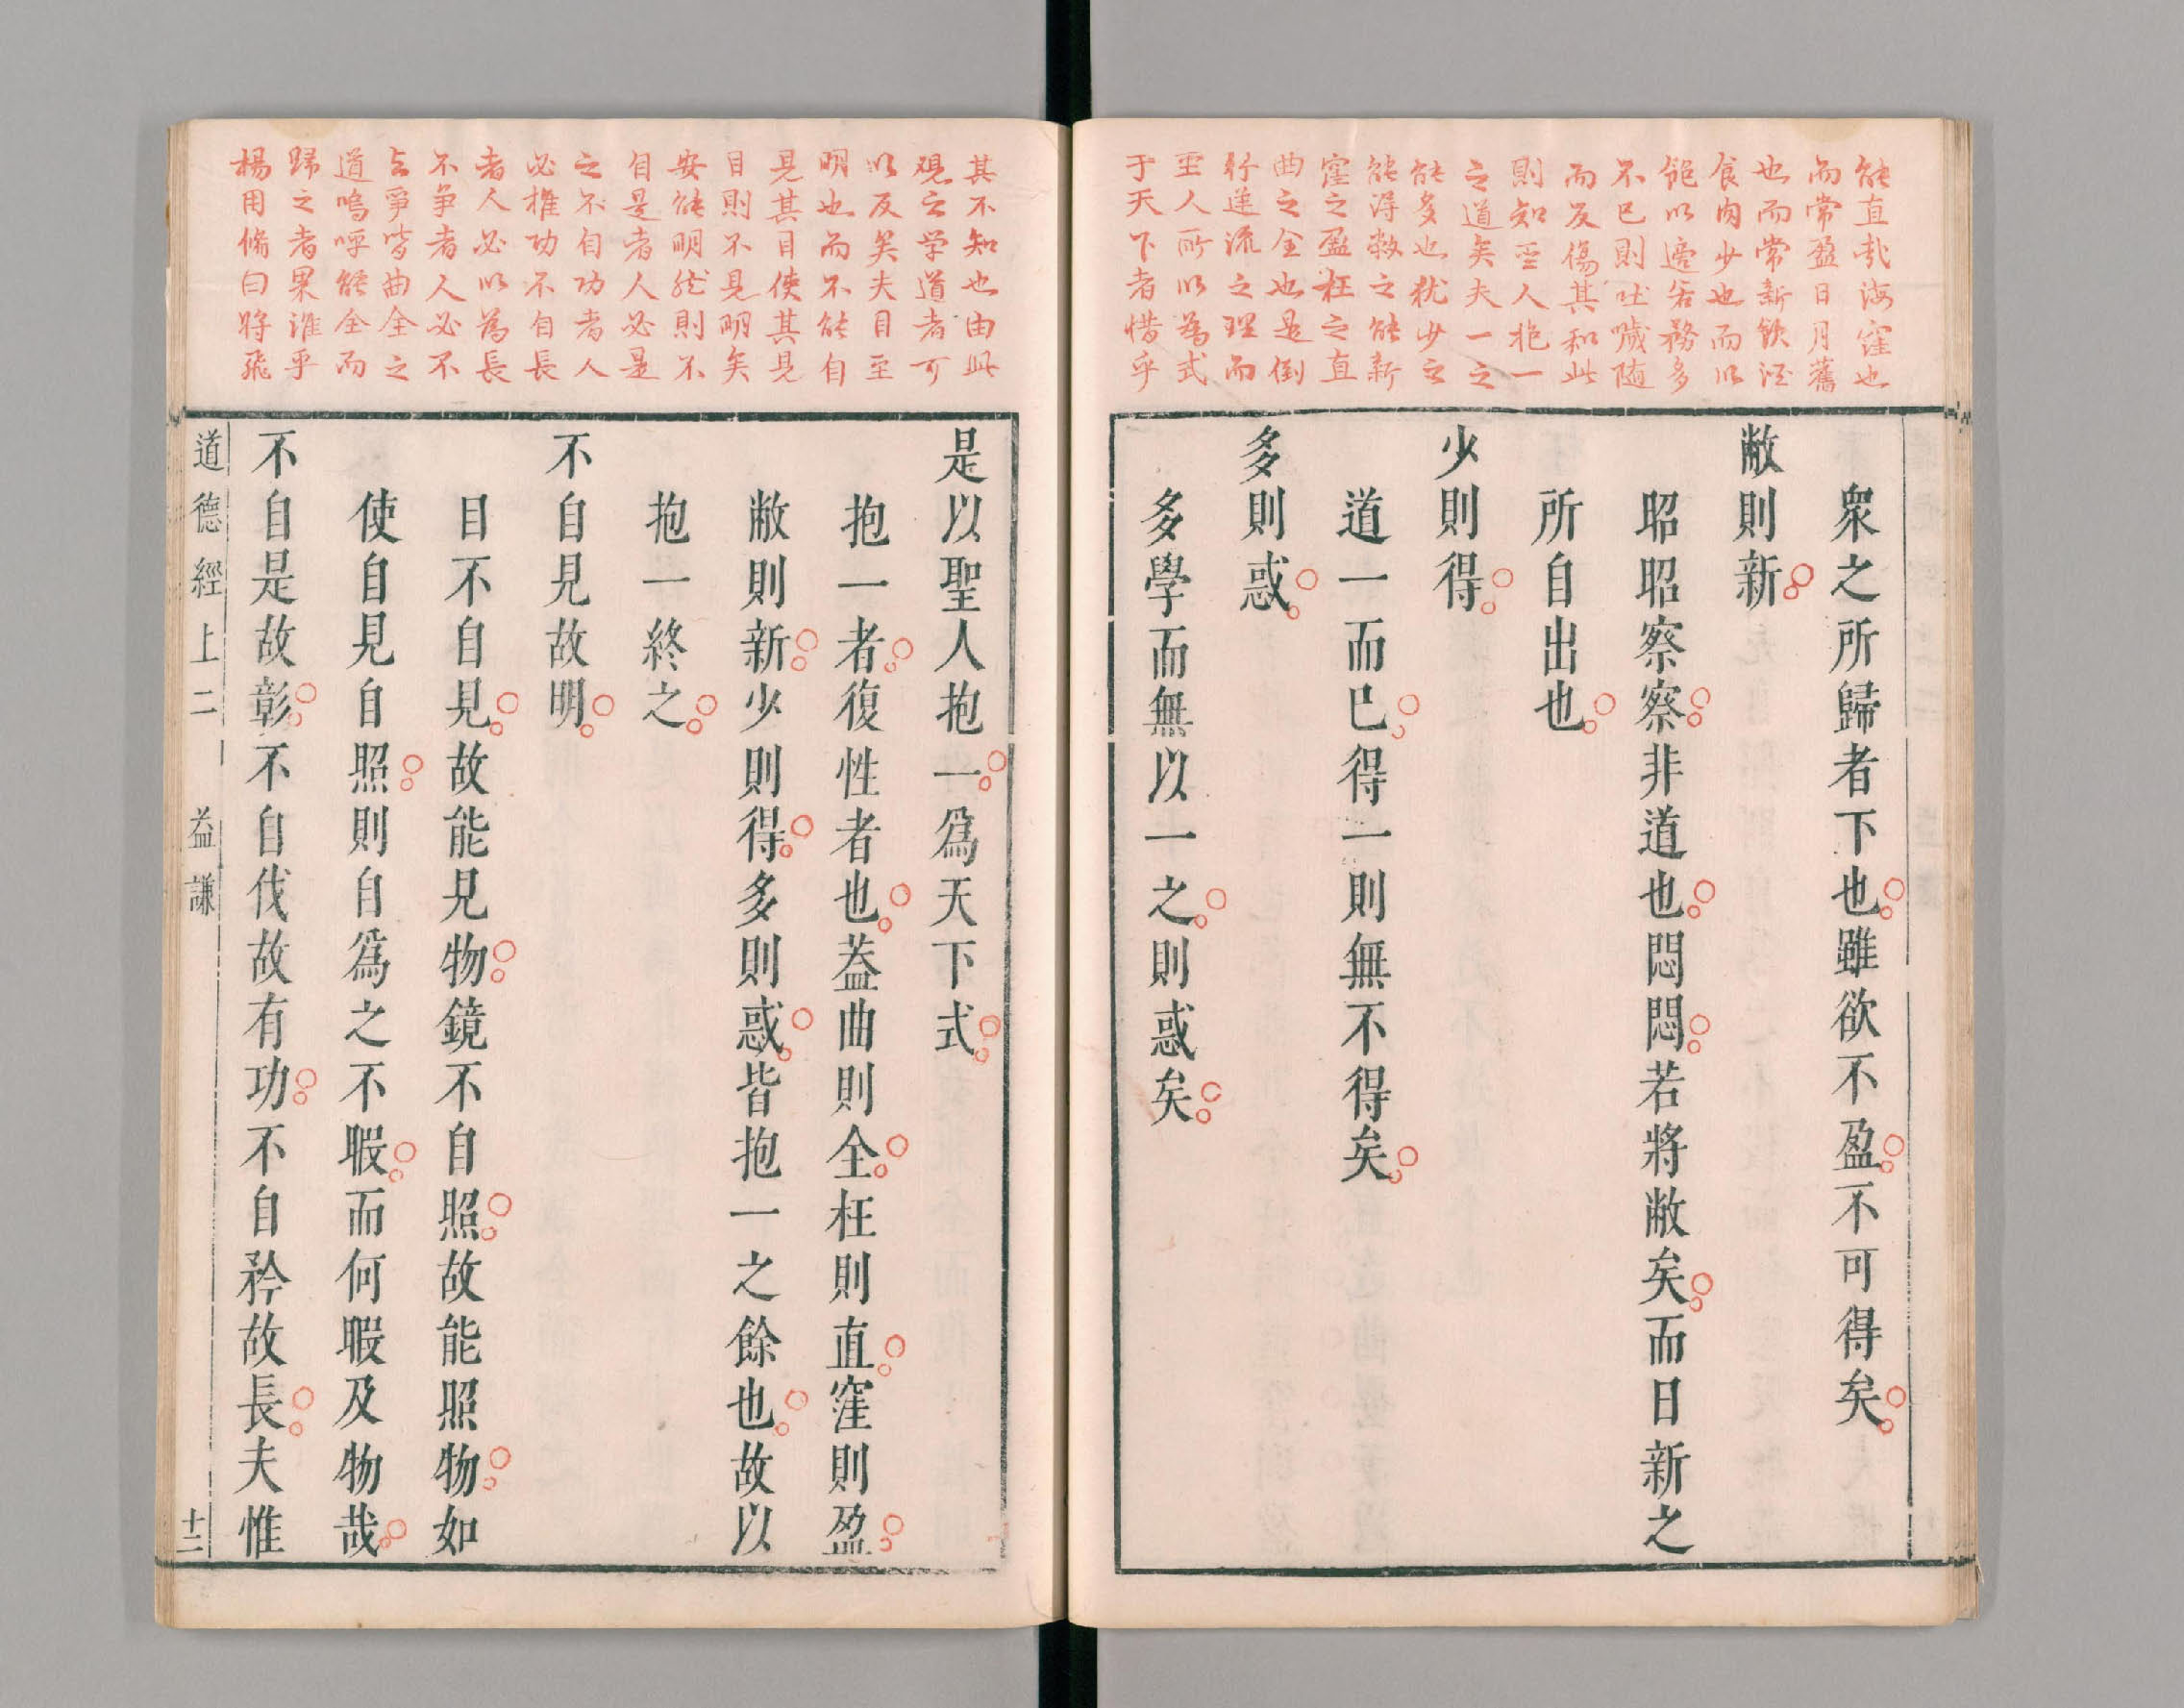 能直哉海窪也
而常盈日月舊
也而常新飲酒
食肉少也而以
飽以適若務多
不已則吐噦随
而反傷其和此
則知聖人抱一
之道矣夫一之
能多也犹少之
能得敝之能新
窪之盈枉之直
曲之全也是倒
行逆流之理而
聖人所以為式
于天下者惜乎
衆之所歸者下也雖欲不盈不可得矣
敝則新
昭昭察察非道也悶悶若將敝矣而日新之
所自出也
少則得
道一而已得一則無不得矣
多則惑
多學而無以一之則惑矣
其不知也由此
觀之学道者可
以反矣夫目至
明也而不能自
見其目使其見
目則不見明矣
安能明然則不
自是者人必是
之不自功者人
必推功不自長
者人必以為長
不争者人必不
与爭皆曲全之
道嗚呼能全而
歸之者果誰乎
楊用脩曰將飛
是以聖人抱一爲天下式
抱一者復性者也葢曲則全枉則直窪則盈
敝則新少則得多則惑皆抱一之餘也故以
抱一終之
不自見故明
目不自見故能見物鏡不自照故能照物如
使自見自照則自爲之不暇而何暇及物哉
不自是故彰不自伐故有功不自矜故長夫惟
道德經上二 益謙 十二